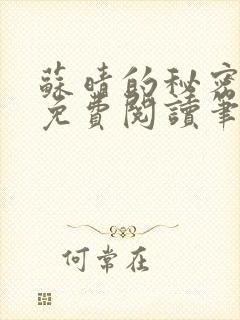 蘇晴的秘密
免費閱讀筆
何常在